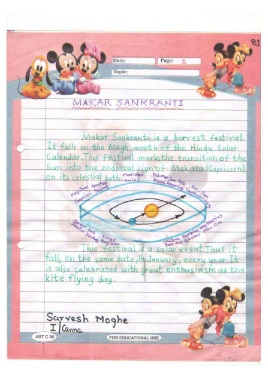 81
Date:
Page: 5
Topic:
MAKAR SANKRANTI
Makar Sankranti is a harvest festival.
It falls on the Magh month of the Hindu Solar
Calendar. This festival marks the transition of the
Sun into the zodiacal sign of Makara (Capricorn)
on its celestial path.
This festival is a solar event. Thus it
falls on the same date, 14 January, every year. It
is also celebrated with great enthusiasm as the
kite flying day.
Sarvesh Moghe
I/Canna
ART C 36
FOR EDUCATIONAL USE